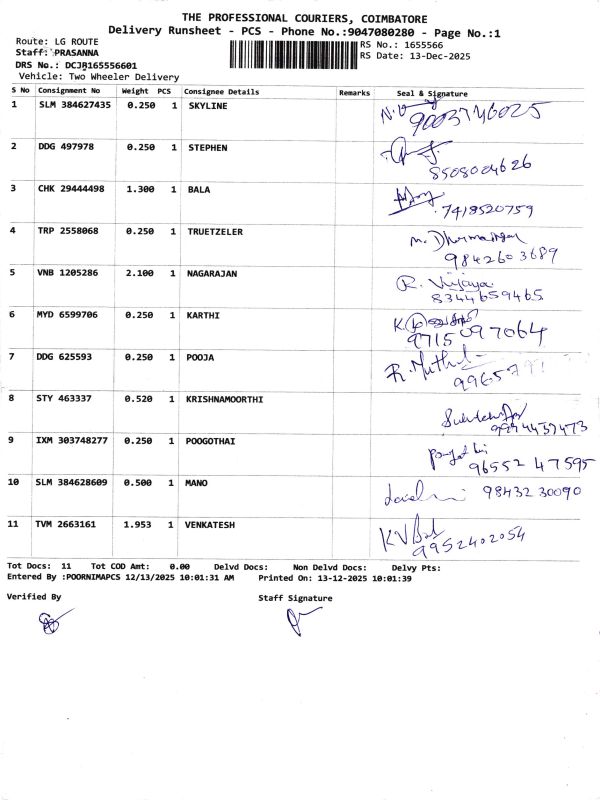 THE PROFESSIONAL COURIERS, COIMBATORE
Delivery Runsheet - PCS - Phone No.:9047080280 - Page No.:1
Route: LG ROUTE
RS No.: 1655566
Staff: PRASANNA
RS Date: 13-Dec-2025
DRS No.: DCJB165556601
Vehicle: Two Wheeler Delivery
S No Consignment No Weight PCS Consignee Details Remarks Seal & Signature
1 SLM 384627435 0.250 1 SKYLINE
9003746025
2 DDG 497978 0.250 1 STEPHEN
8508004626
3 CHK 29444498 1.300 1 BALA
7418520759
4 TRP 2558068 0.250 1 TRUETZELER
9842603689
5 VNB 1205286 2.100 1 NAGARAJAN R. Vijaya
8344659465
6 MYD 6599706 0.250 1 KARTHI
9715097064
7 DDG 625593 0.250 1 POOJA R. Muthu
8 STY 463337 0.520 1 KRISHNAMOORTHI
9 IXM 303748277 0.250 1 POOGOTHAI
96552 47595
10 SLM 384628609 0.500 1 MANO 98432 30090
11 TVM 2663161 1.953 1 VENKATESH
9952402054
Tot Docs: 11 Tot COD Amt: 0.00 Delvd Docs: Non Delvd Docs: Delvy Pts:
Entered By :POORNIMAPCS 12/13/2025 10:01:31 AM Printed On: 13-12-2025 10:01:39
Verified By Staff Signature